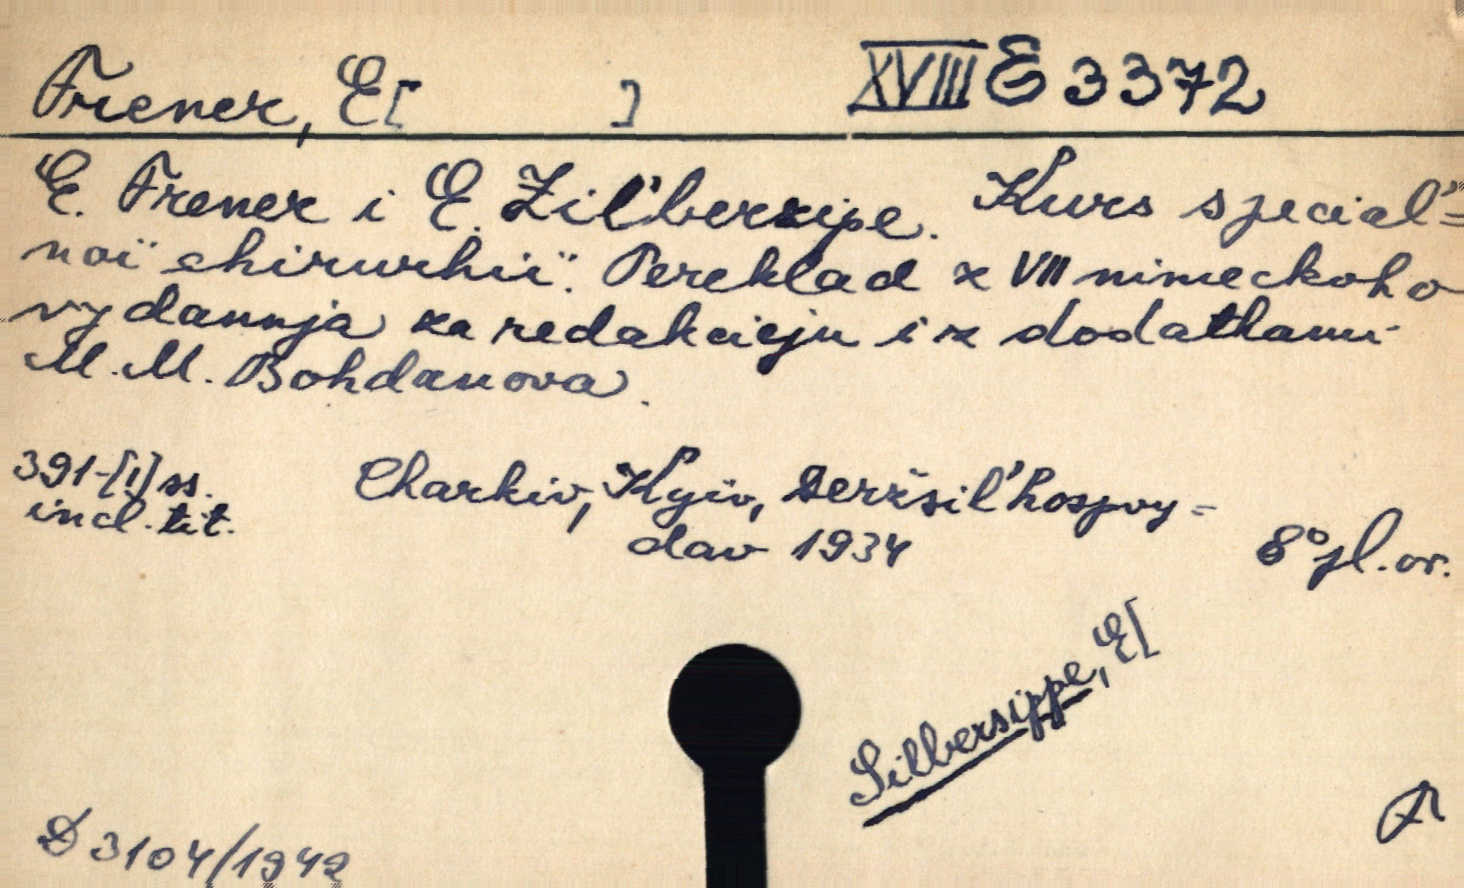 Frener, E[ ] XVIII E 3372
E. Frener i E. Zil'berzipe. Kurs special'=
noï chirurhiï. Pereklad z VII nimeckoho
vydannja za redakcieju i z dodatkamy
M. M. Bohdanova.
391-[1] ss.
incl. tit.
Charkiv, Kyiv, Deržsil'hospvy=
dav 1934
8° pl. or.
Silbersippe, E[
D 3104/1942